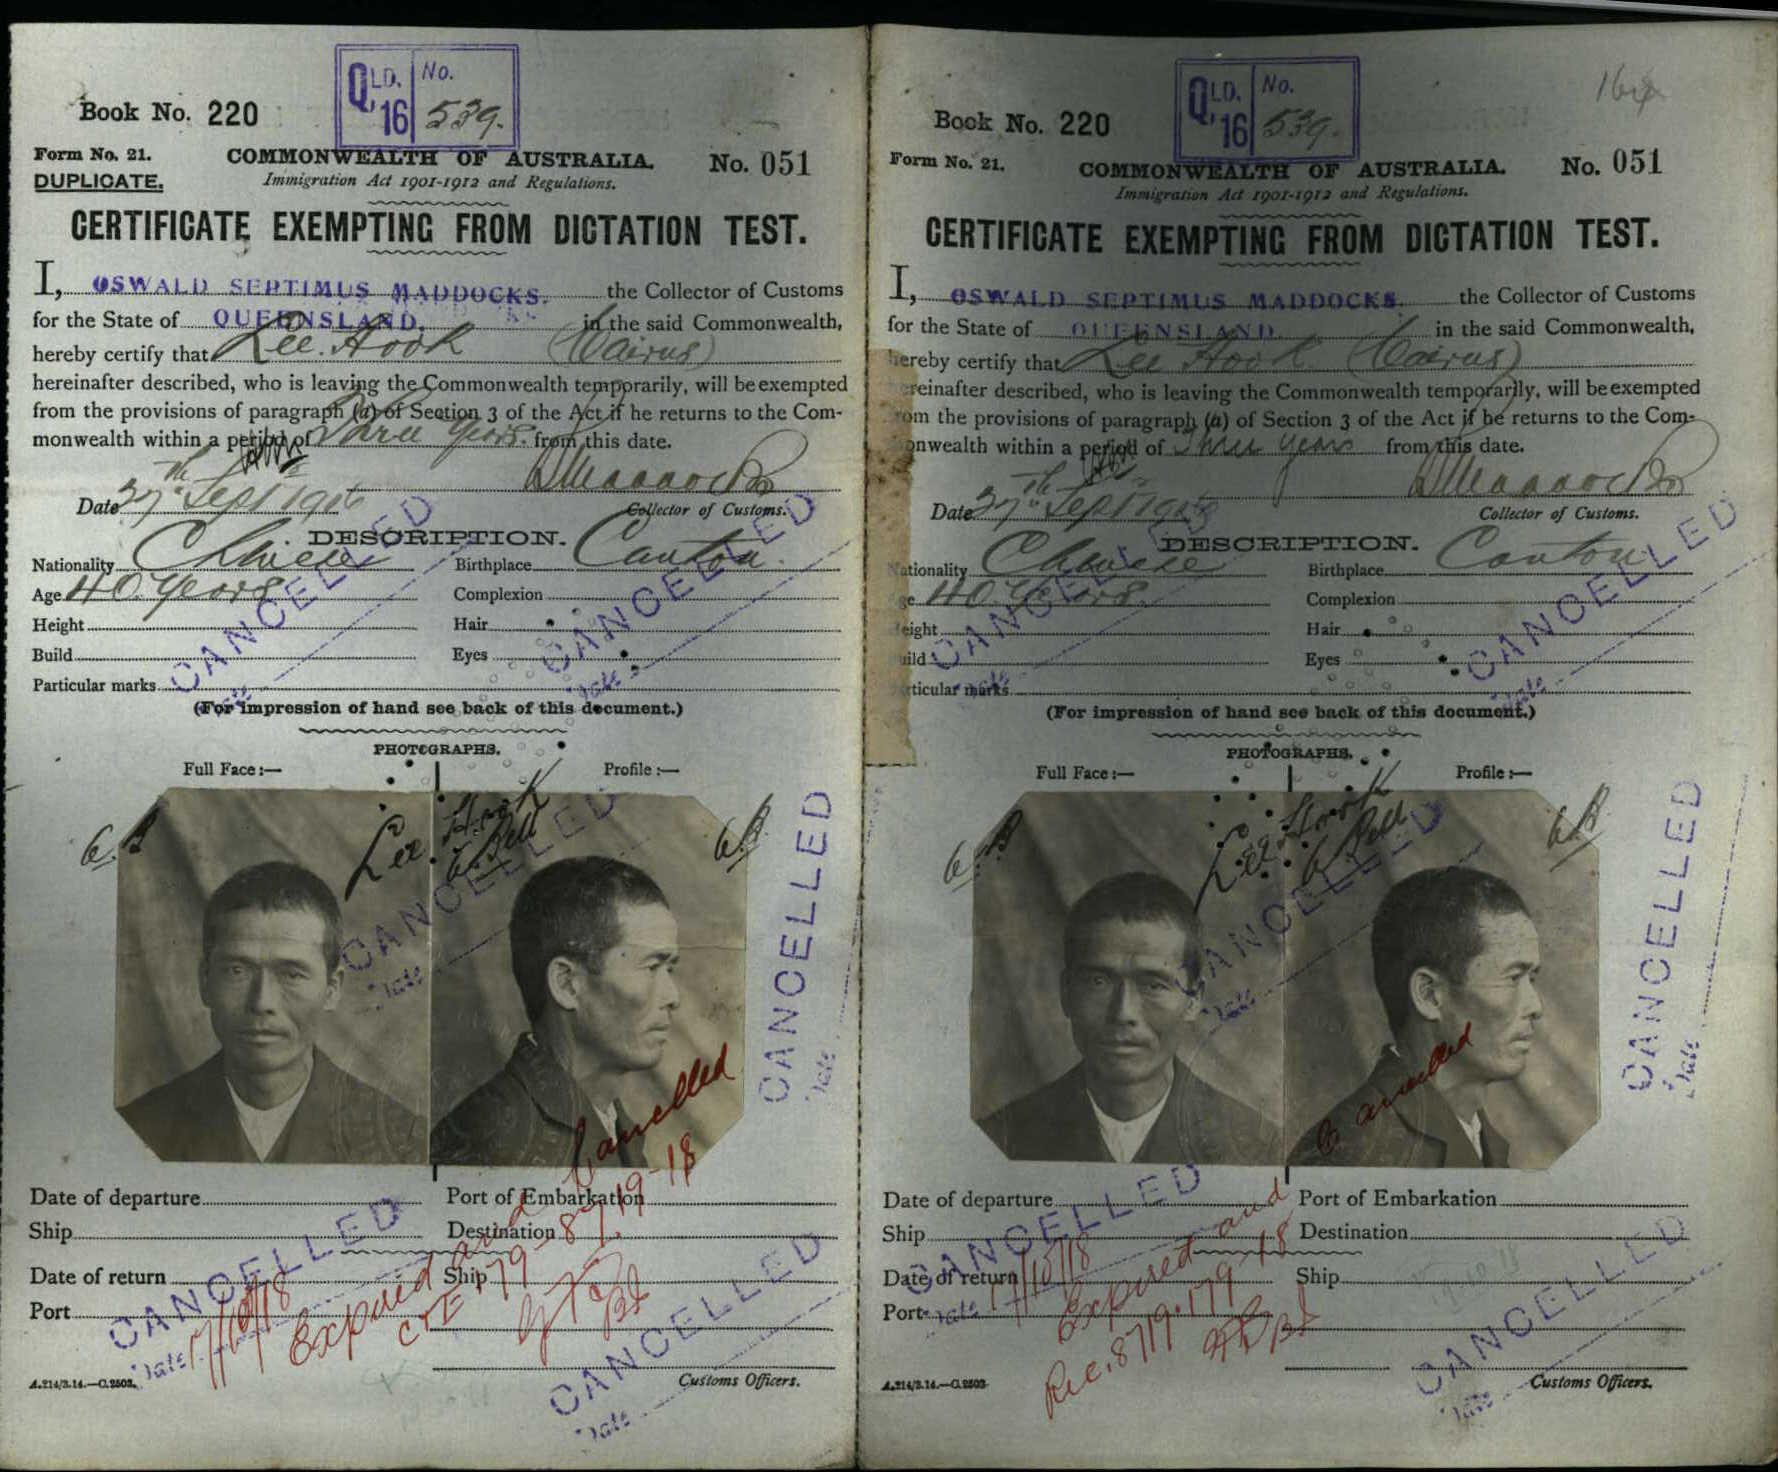 QLD. 16 No. 539.
Book No. 220
Form No. 21.
COMMONWEALTH OF AUSTRALIA. No. 051
DUPLICATE.
Immigration Act 1901-1912 and Regulations.
CERTIFICATE EXEMPTING FROM DICTATION TEST.
I, OSWALD SEPTIMUS MADDOCKS. the Collector of Customs
for the State of QUEENSLAND. in the said Commonwealth,
hereby certify that Lee Hook (Cairns)
hereinafter described, who is leaving the Commonwealth temporarily, will be exempted
from the provisions of paragraph (a) of Section 3 of the Act if he returns to the Com-
monwealth within a period of Three Years. from this date.
Date 27th Sept 1916
Collector of Customs.
DESCRIPTION.
Nationality Chinese Birthplace Canton.
Age 40. Years Complexion
Height Hair
Build Eyes
Particular marks
(For impression of hand see back of this document.)
PHOTOGRAPHS.
Full Face:— Profile:—
Lee Hook
G. Bell
G.B
G.B
CANCELLED
Date
CANCELLED
Date
CANCELLED
Date
CANCELLED
Date
Date of departure Port of Embarkation
Ship Destination
Date of return Ship
Port
CANCELLED
Date 17/10/18
CANCELLED
Date
Expired and Cancelled
CTE 179-8719-18
A.214/3.14.—C.2503.
Customs Officers.
QLD. 16 No. 539.
Book No. 220
Form No. 21.
COMMONWEALTH OF AUSTRALIA. No. 051
Immigration Act 1901-1912 and Regulations.
CERTIFICATE EXEMPTING FROM DICTATION TEST.
I, OSWALD SEPTIMUS MADDOCKS. the Collector of Customs
for the State of QUEENSLAND. in the said Commonwealth,
hereby certify that Lee Hook (Cairns)
hereinafter described, who is leaving the Commonwealth temporarily, will be exempted
from the provisions of paragraph (a) of Section 3 of the Act if he returns to the Com-
monwealth within a period of Three years from this date.
Date 27th Sept 1916
Collector of Customs.
DESCRIPTION.
Nationality Chinese Birthplace Canton
Age 40. Years. Complexion
Height Hair
Build Eyes
Particular marks
(For impression of hand see back of this document.)
PHOTOGRAPHS.
Full Face:— Profile:—
Lee Hook
G. Bell
G.B
G.B
CANCELLED
Date
CANCELLED
Date
CANCELLED
Date
CANCELLED
Date
Date of departure Port of Embarkation
Ship Destination
Date of return Ship
Port
CANCELLED
Date 17/10/18
CANCELLED
Date
Expired and Cancelled
Rec. 8719.179-18
A.214/3.14.—C.2503
Customs Officers.